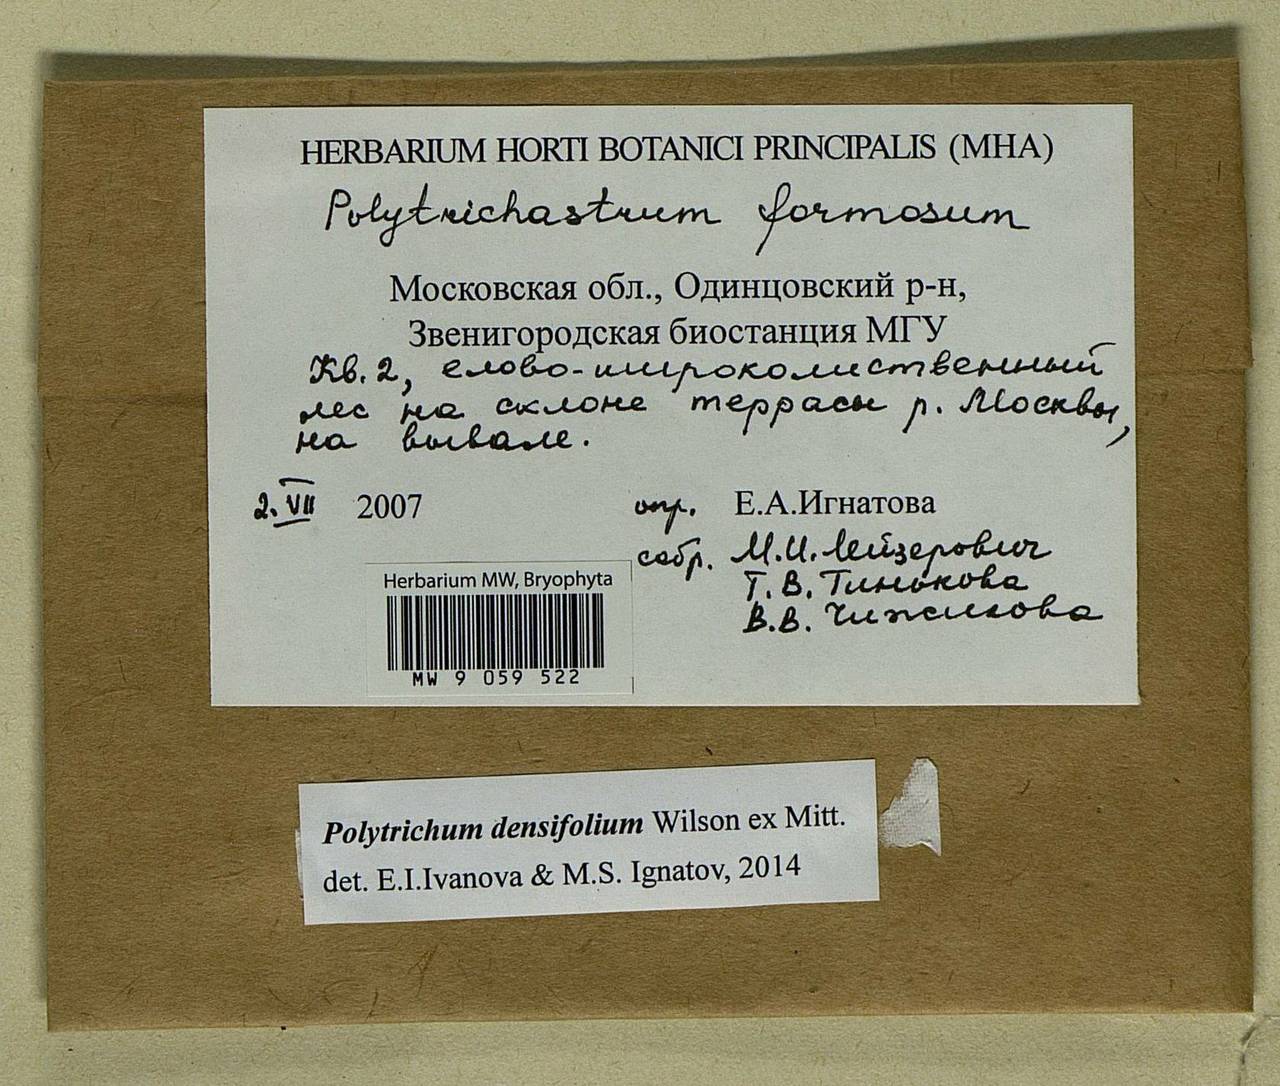 HERBARIUM HORTI BOTANICI PRINCIPALIS (MHA)
Polytrichastrum formosum
Московская обл., Одинцовский р-н,
Звенигородская биостанция МГУ
Кв. 2, елово-широколиственный
лес на склоне террасы р. Москвы,
на вывале.
2. VII 2007
опр. Е.А.Игнатова
собр. М.И. Лейзерович
Т.В. Тинькова
В.В. Чижикова
Herbarium MW, Bryophyta
MW 9 059 522
Polytrichum densifolium Wilson ex Mitt.
det. E.I.Ivanova & M.S. Ignatov, 2014